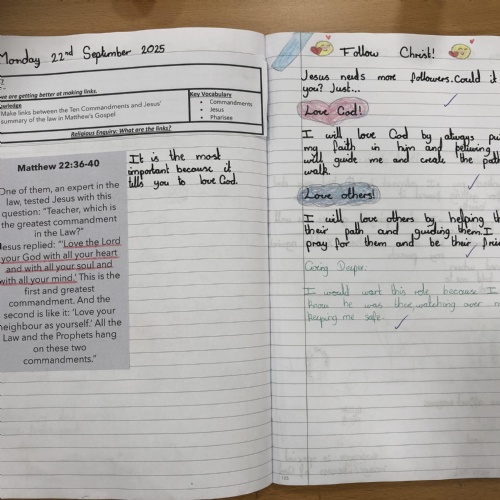 Monday 22nd September 2025
we are getting better at making links.
Make links between the Ten Commandments and Jesus'
summary of the law in Matthew's Gospel
Key Vocabulary
Commandments
Jesus
Pharisee
Religious Enquiry: What are the links?
Matthew 22:36-40
One of them, an expert in the
law, tested Jesus with this
question: "Teacher, which is
the greatest commandment
in the Law?"
Jesus replied: "'Love the Lord
your God with all your heart
and with all your soul and
with all your mind.' This is the
first and greatest
commandment. And the
second is like it: 'Love your
neighbour as yourself.' All the
Law and the Prophets hang
on these two
commandments."
It is the most
important because it
tells you to love God.
Follow Christ!
Jesus needs more followers. Could it
you? Just...
Love God!
I will love God by always
my faith in him and
will guide me and create the path
walk.
Love others!
I will love others by helping
their path and guiding them. I
pray for them and be their
Going Deeper:
I would want this role because I
know he was there, watching over
keeping me safe.